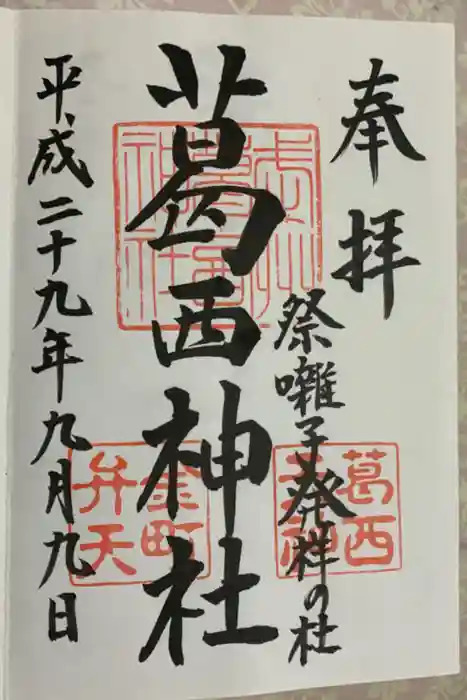 奉拝
祭囃子発祥の杜
葛西神社
平成二十九年九月九日
葛西
神社
葛西
神
金町
弁天